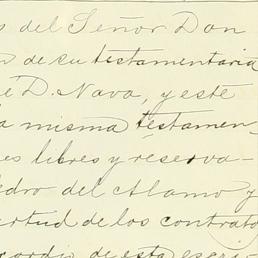 s del Señor Don
n de su testamentaria
é D. Nava, y este
a misma testamen,
es libres y reserva-
edro del Alamo y
ertud de los contrato